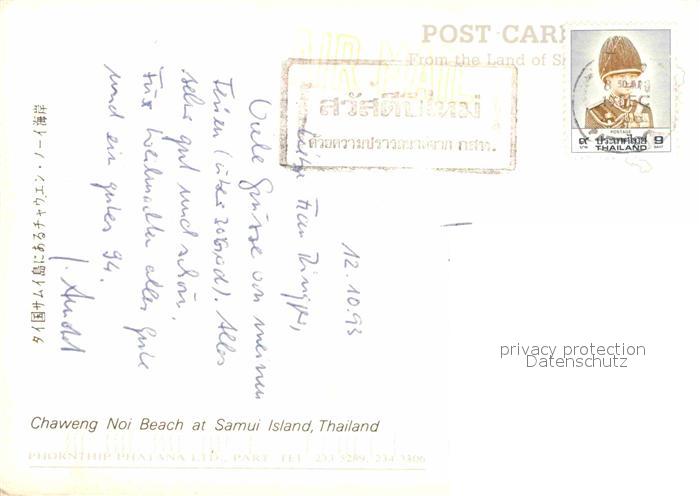 POST CAR
From the Land of S
AIR MAIL
สวัสดีปีใหม่
ด้วยความปรารถนาดีจาก กสท.
POSTAGE
๙ ประเทศไทย 9
THAILAND
12.10.93
Liebe Frau
Viele Grüsse von meinen
Ferien (über 30 Grad). Alles
sehr gut und schön.
Für Weihnachten alles Gute
und ein gutes 94.
タイ国サムイ島にあるチャウエン・ノーイ海岸
privacy protection
Datenschutz
Chaweng Noi Beach at Samui Island, Thailand
PHORNTHIP PHATANA LTD., PART. TEL. 233 5289, 234 3306